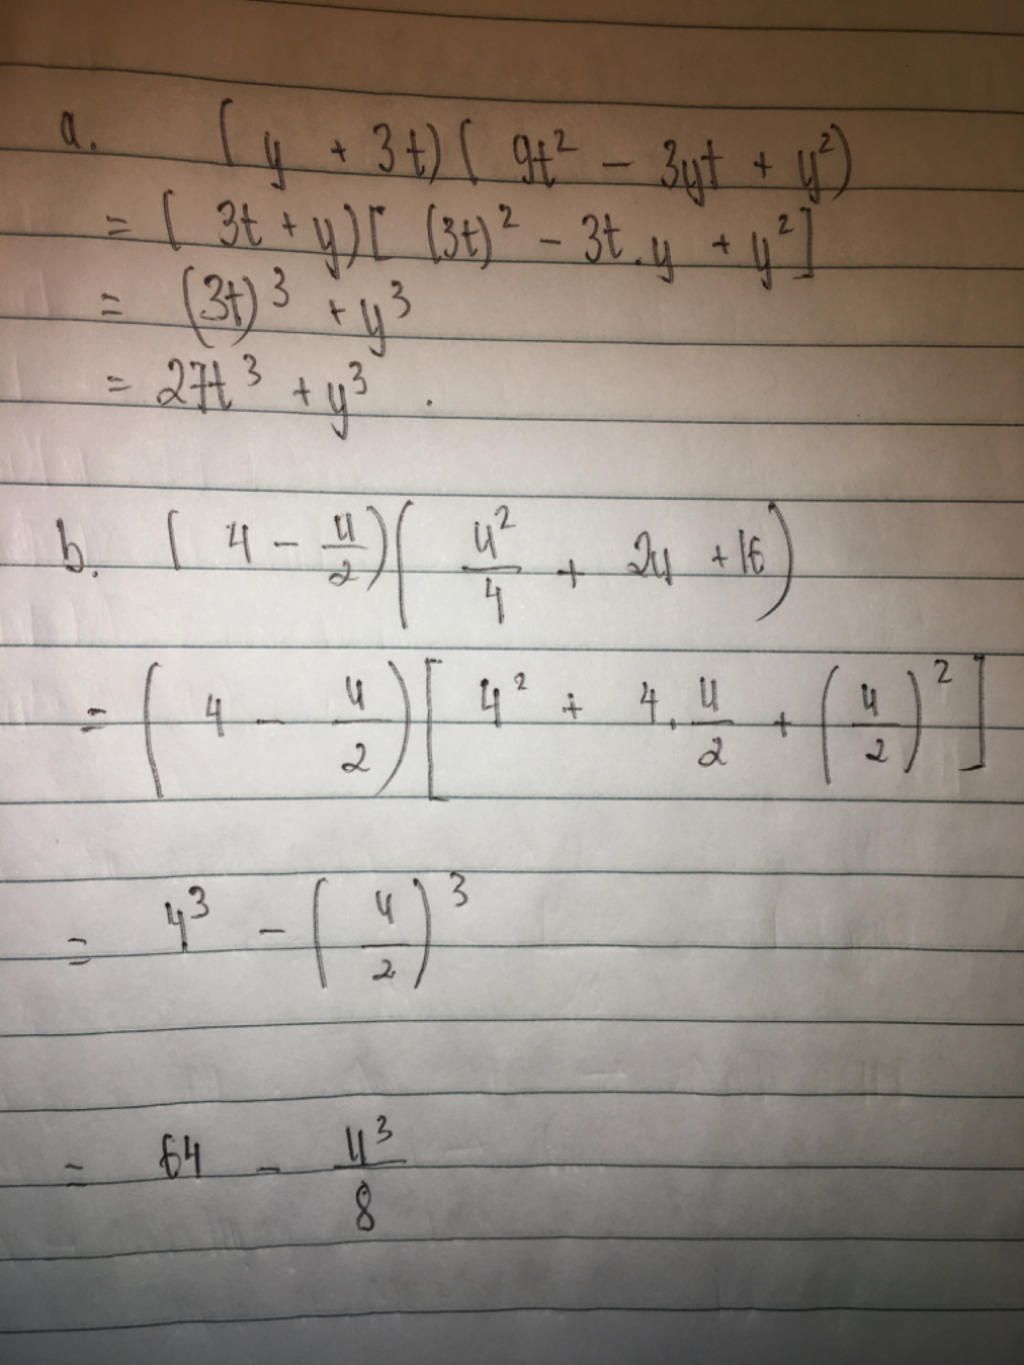 a. (y + 3t)(9t² - 3yt + y²)
= (3t + y)[(3t)² - 3t.y + y²]
= (3t)³ + y³
= 27t³ + y³.
b. (4 - u/2)(u²/4 + 2u + 16)
= (4 - u/2)[4² + 4.u/2 + (u/2)²]
= 4³ - (u/2)³
= 64 - u³/8